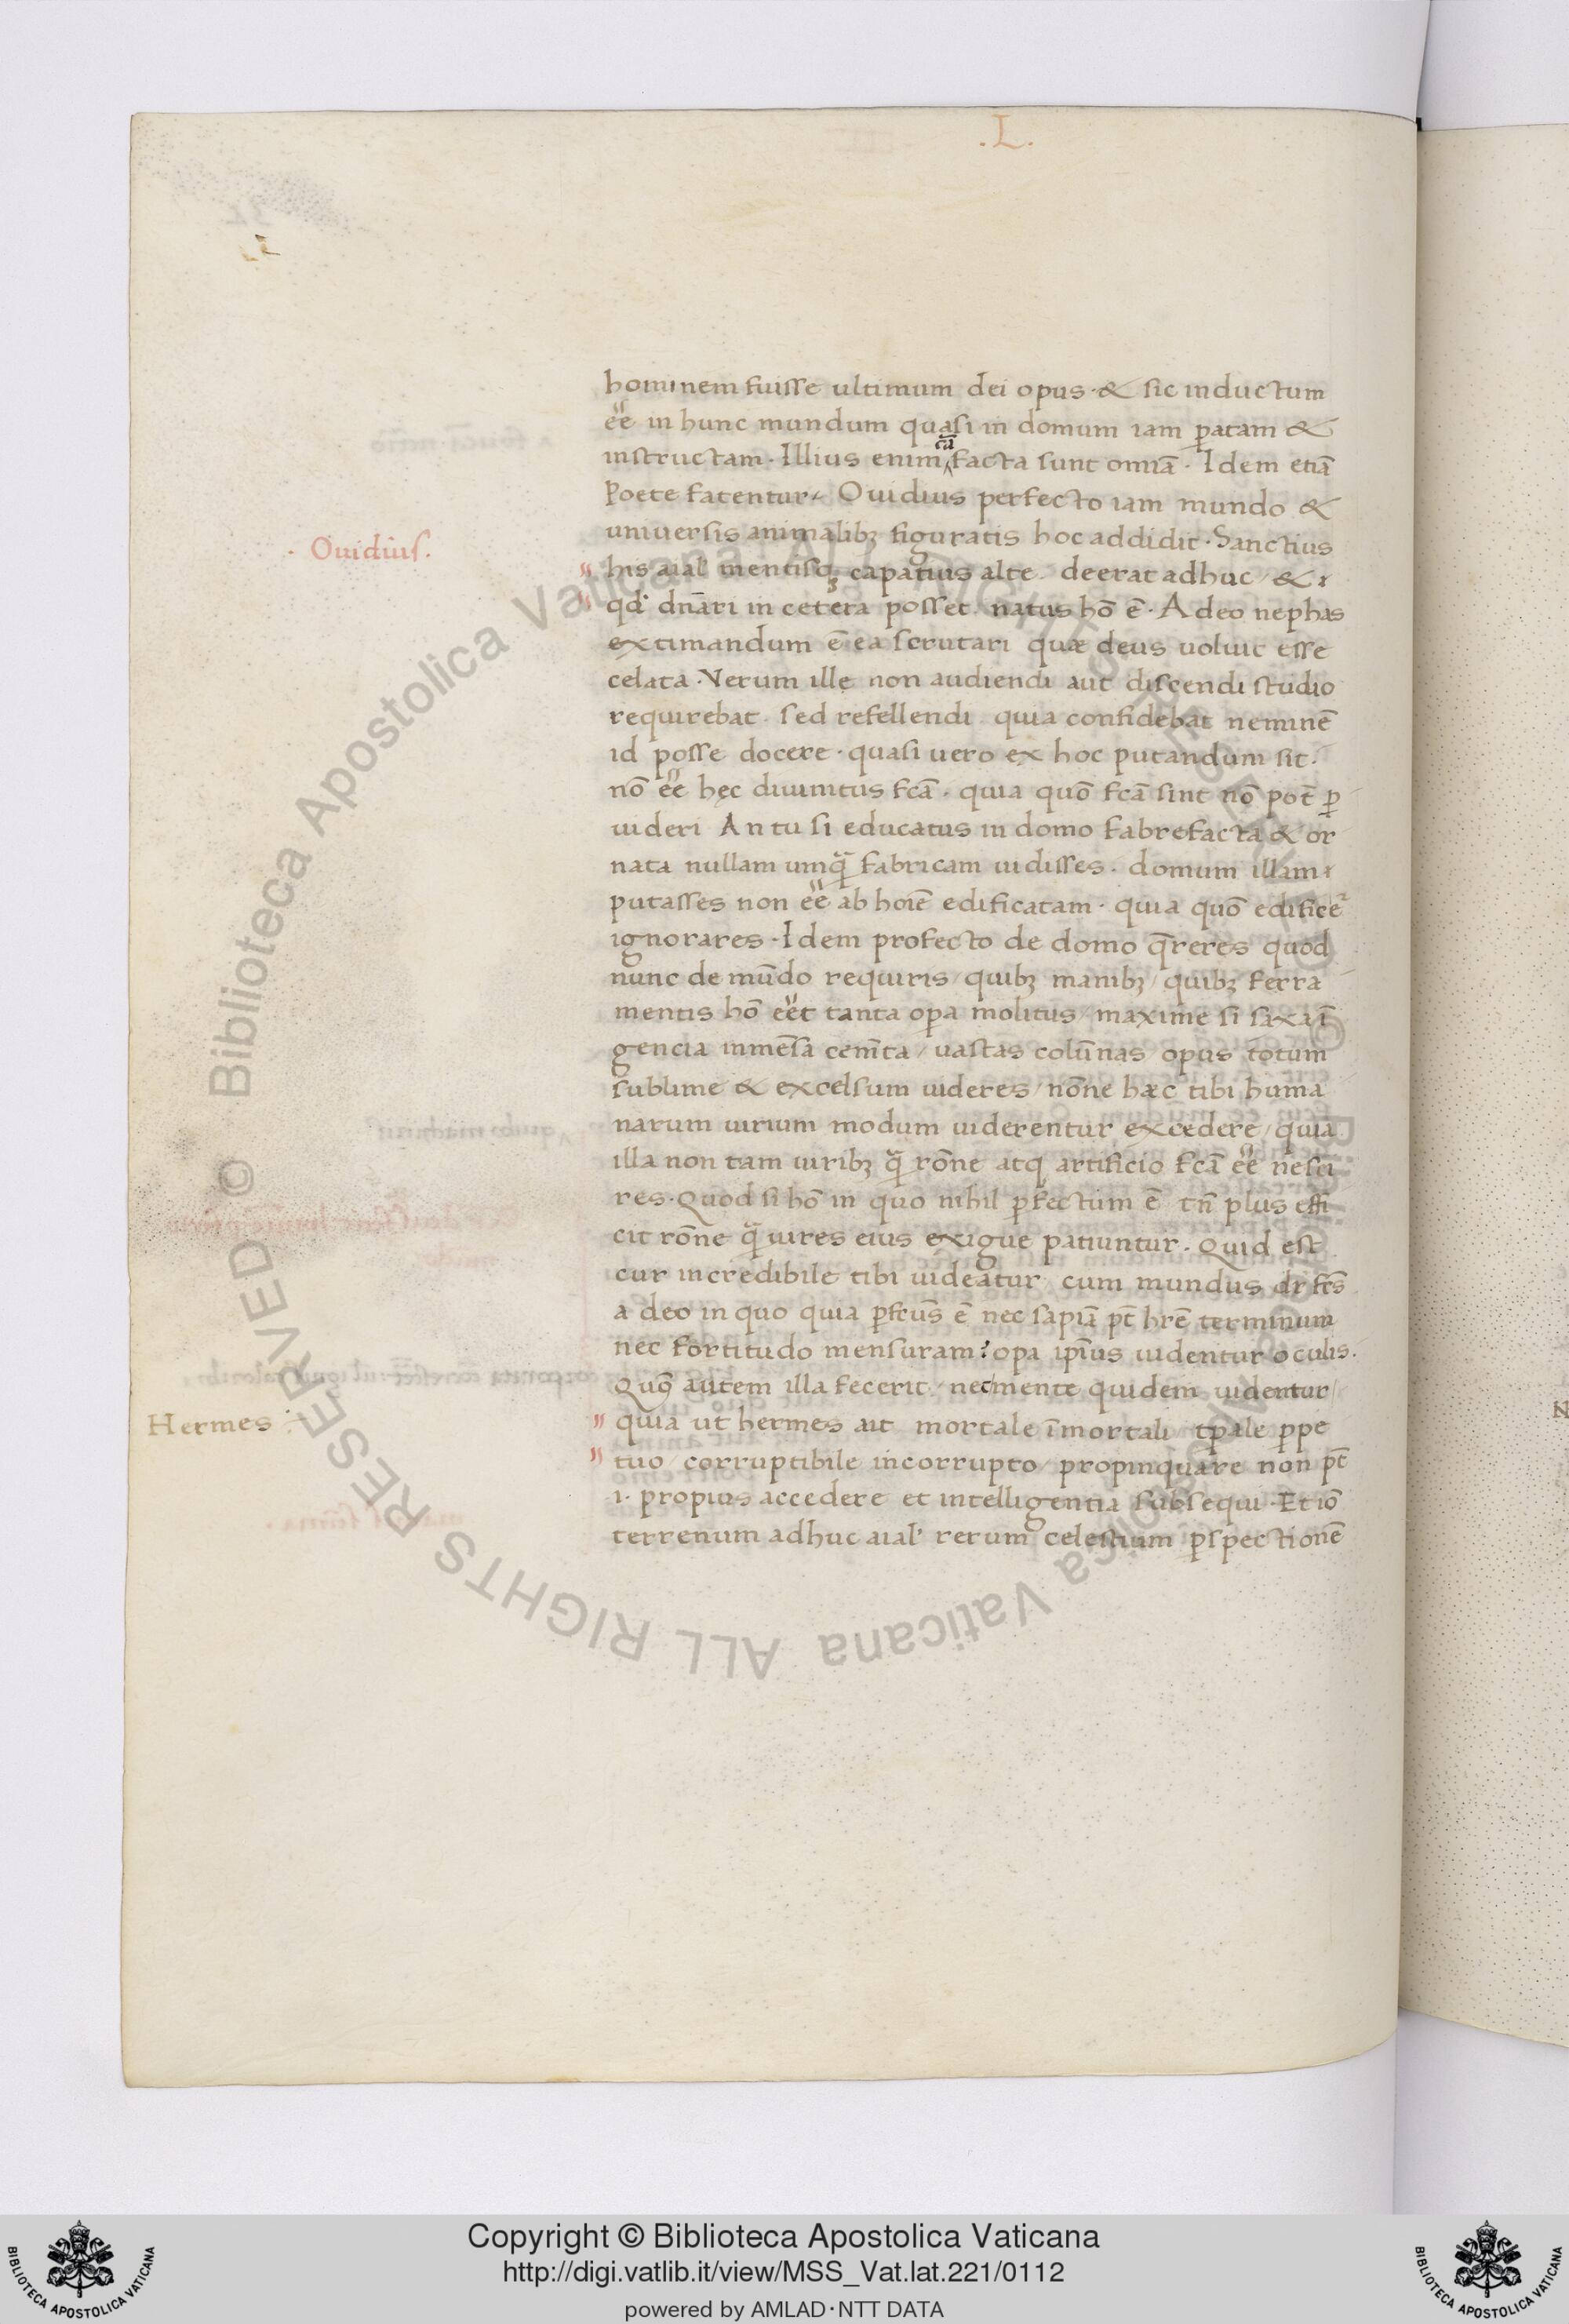 .L.
hominem fuisse ultimum dei opus · & sic inductum
ee̋ in hunc mundum quasi in domum iam ꝑatam &
instructam · Illius enim cā facta sunt omīa · Idem etiā
Poete fatentur · Ouidius perfecto iam mundo &
uniuersis animalibꝫ figuratis hoc addidit · Sanctius
· Ouidius .
his aial mentisqꝫ capatius alte deerat adhuc / &
qd̓ dnāri in cetera posset natus hō ē · Adeo nephas
extimandum ē ea scrutari quæ deus uoluit esse
celata · Verum ille non audiendi aut discendi studio
requirebat · sed refellendi quia confidebat neminē
id posse docere · quasi uero ex hoc putandum sit ·
nō ee̋ hęc diuinitus fcā · quia quō fcā sint nō pot̄ ꝑ
uideri An tu si educatus in domo fabrefacta & or
nata nullam umq̄ fabricam uidisses · domum illam
putasses non ee̋ ab hoīe edificatam · quia quō edificet᷑
ignorares · Idem profecto de domo q̄reres quod
nunc de mūdo requiris / quibꝫ manibꝫ / quibꝫ ferra
mentis hō ee̋t tanta oꝑa molitus / maxime si saxa ī
gencia inmēsa cemt̄a / uastas colūnas / opus totum
sublime & excelsum uideres / nōne hæc tibi huma
narum uirium modum uiderentur excedere / quia
illa non tam uiribꝫ q̄ rōne atq̨ artificio fcā ee̋ nesci
res · Quod si hō in quo nihil ꝑfectum ē tn̄ plus effi
cit rōne q̄ uires eius exigue patiuntur · Quid est
cur incredibile tibi uideatur / cum mundus dr̄ fcs̄
a deo in quo quia ꝑfctus̄ ē nec sapiā pt̄ hrē terminum
nec fortitudo mensuram? oꝑa ipīus uidentur oculis ·
Quō autem illa fecerit / nec mente quidem uidentur /
Hermes :
quia ut hermes ait mortale īmortali tꝑale ꝑpe
tuo / corruptibile incorrupto / propinquare non pt̄
·i· propius accedere et intelligentia subsequi · Et iō
terrenum adhuc aial rerum celestium ꝑspectionē
Copyright © Biblioteca Apostolica Vaticana
http://digi.vatlib.it/view/MSS_Vat.lat.221/0112
powered by AMLAD·NTT DATA
BIBLIOTECA APOSTOLICA VATICANA
BIBLIOTECA APOSTOLICA VATICANA
© Biblioteca Apostolica Vaticana ALL RIGHTS RESERVED